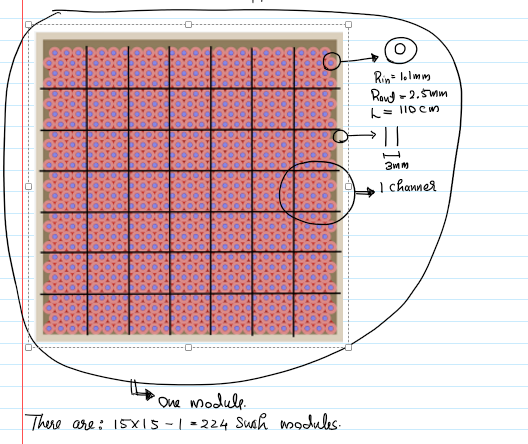 Rin = 1.1mm
Rout = 2.5mm
L = 110 cm
3mm
1 channer
One module.
There are: 15x15 - 1 = 224 Such modules.